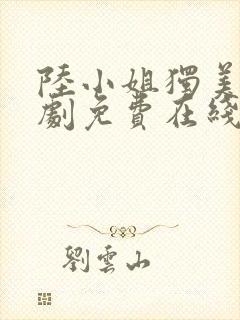 陸小姐獨美
劇免費在綫
劉雲山